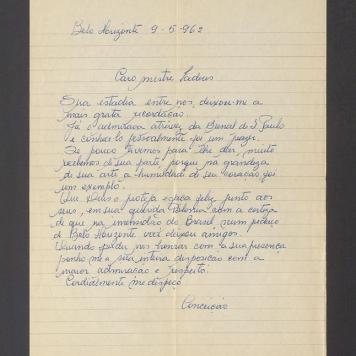 Belo Horizonte 9-5-962
Caro mestre Tadeus
Sua estadia entre nos, deixou-me a
mais grata recordação.
Já o admirava através da Bienal de S. Paulo
e conhece-lo pessoalmente foi um prazer.
Se pouco tivemos para lhe dar, muito
recebemos de sua parte porque na grandeza
de sua arte a humildade do seu coração foi
um exemplo.
Que Deus o proteja e faça feliz junto aos
seus, em sua querida Polonia com a certeza
de que na imensidão do Brasil, num pedaço
de Belo Horizonte você deixou amigos.
Quando puder nos honrar com a sua presença
ponho-me a sua inteira disposição com a
maior admiração e respeito.
Cordialmente me despeço
Conceição